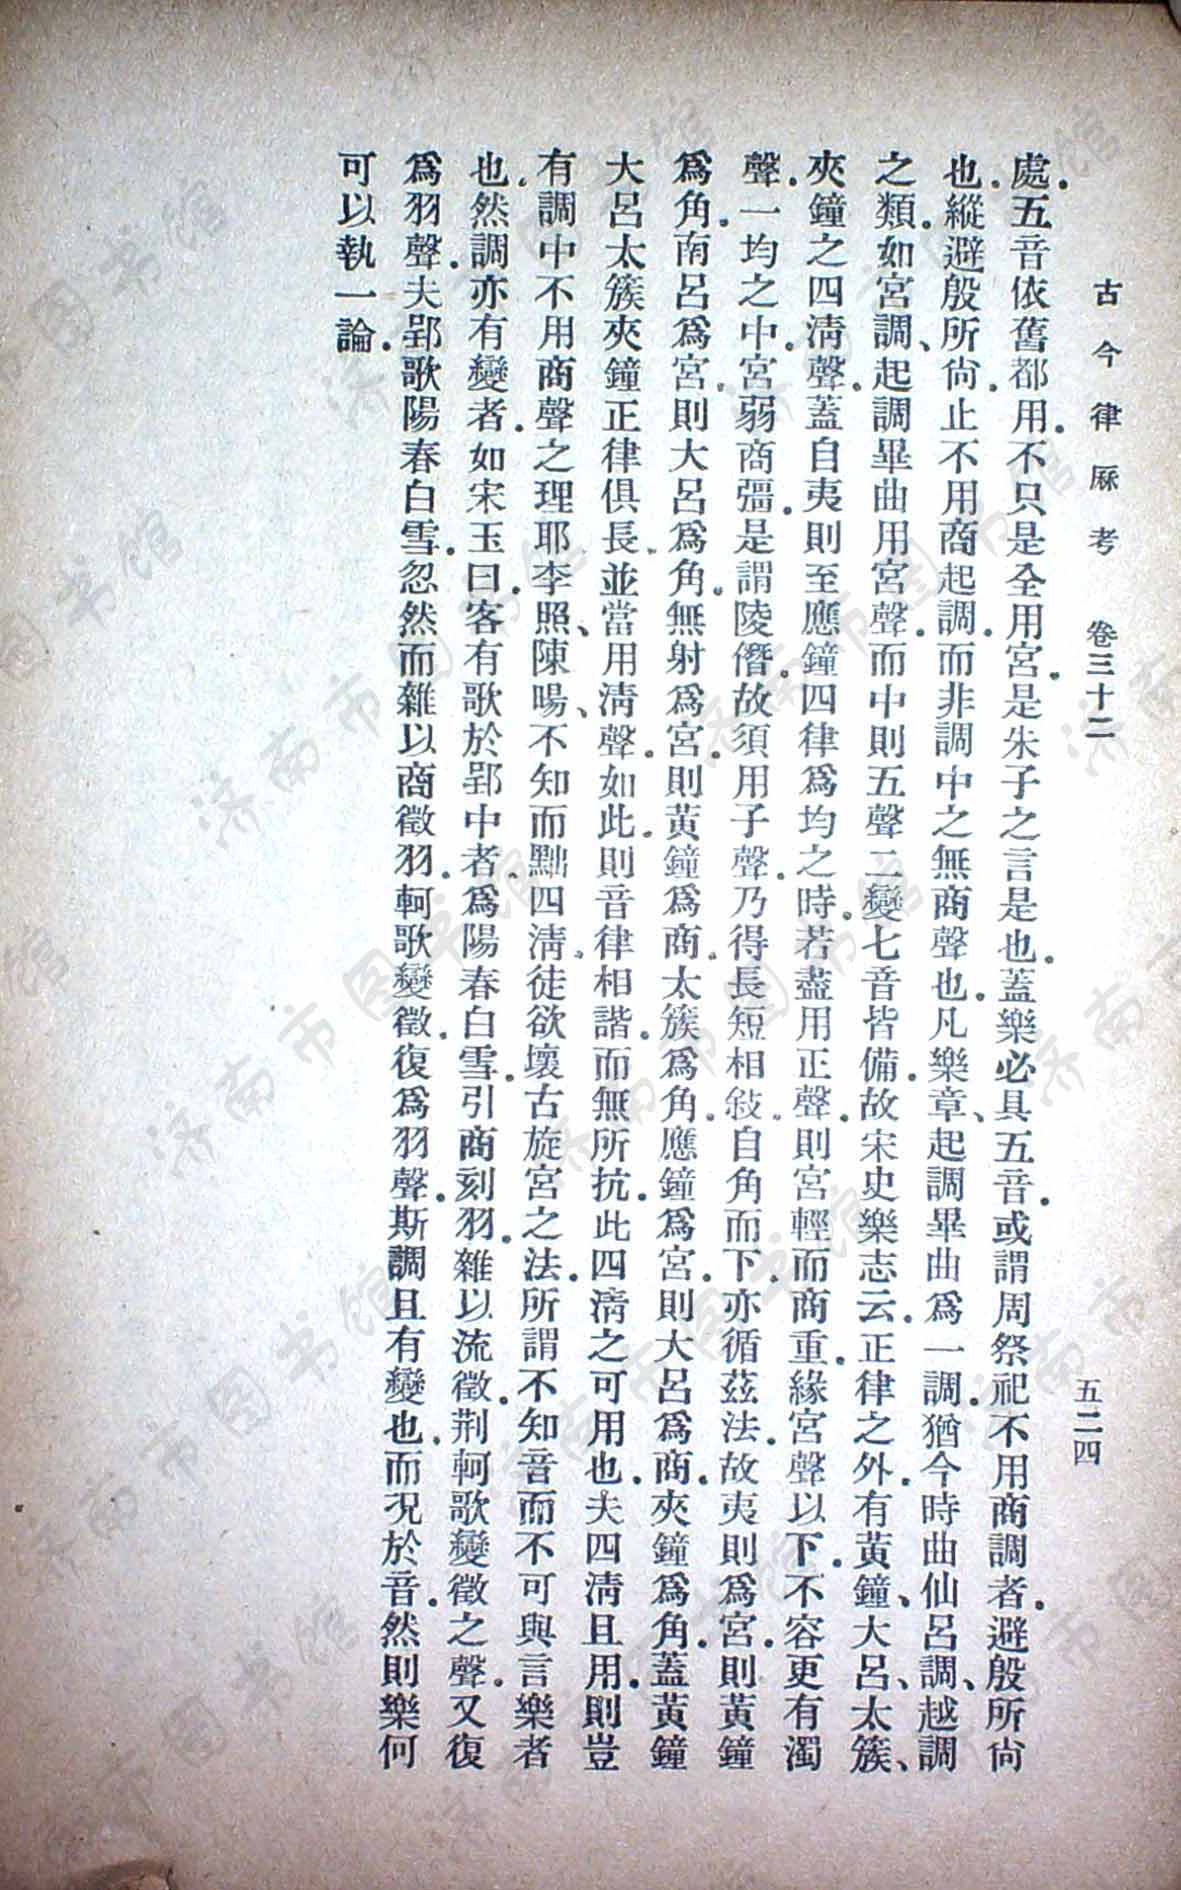 古今律厤考　卷三十二　五二四
處。五音依舊都用。不只是全用宮。是朱子之言是也。蓋樂必具五音。或謂周祭祀不用商調者。避殷所尙
也。縱避殷所尙。止不用商起調。而非調中之無商聲也。凡樂章、起調畢曲爲一調。猶今時曲仙呂調、越調
之類。如宮調、起調畢曲用宮聲。而中則五聲二變七音皆備。故宋史樂志云。正律之外。有黃鐘、大呂、太簇、
夾鐘之四淸聲。蓋自夷則至應鐘四律爲均之時。若盡用正聲。則宮輕而商重。緣宮聲以下。不容更有濁
聲。一均之中。宮弱商彊。是謂陵僭。故須用子聲。乃得長短相敍。自角而下。亦循茲法。故夷則爲宮。則黃鐘
爲角。南呂爲宮。則大呂爲角。無射爲宮。則黃鐘爲商。太簇爲角。應鐘爲宮。則大呂爲商。夾鐘爲角。蓋黃鐘
大呂太簇夾鐘正律俱長。並當用淸聲。如此。則音律相諧。而無所抗。此四淸之可用也。夫四淸且用。則豈
有調中不用商聲之理耶。李照、陳暘、不知而黜四淸。徒欲壞古旋宮之法。所謂不知音而不可與言樂者
也。然調亦有變者。如宋玉曰。客有歌於郢中者。爲陽春白雪。引商刻羽。雜以流徵。荆軻歌變徵之聲。又復
爲羽聲。夫郢歌陽春白雪。忽然而雜以商徵羽。軻歌變徵。復爲羽聲。斯調且有變也。而況於音。然則樂何
可以執一論。